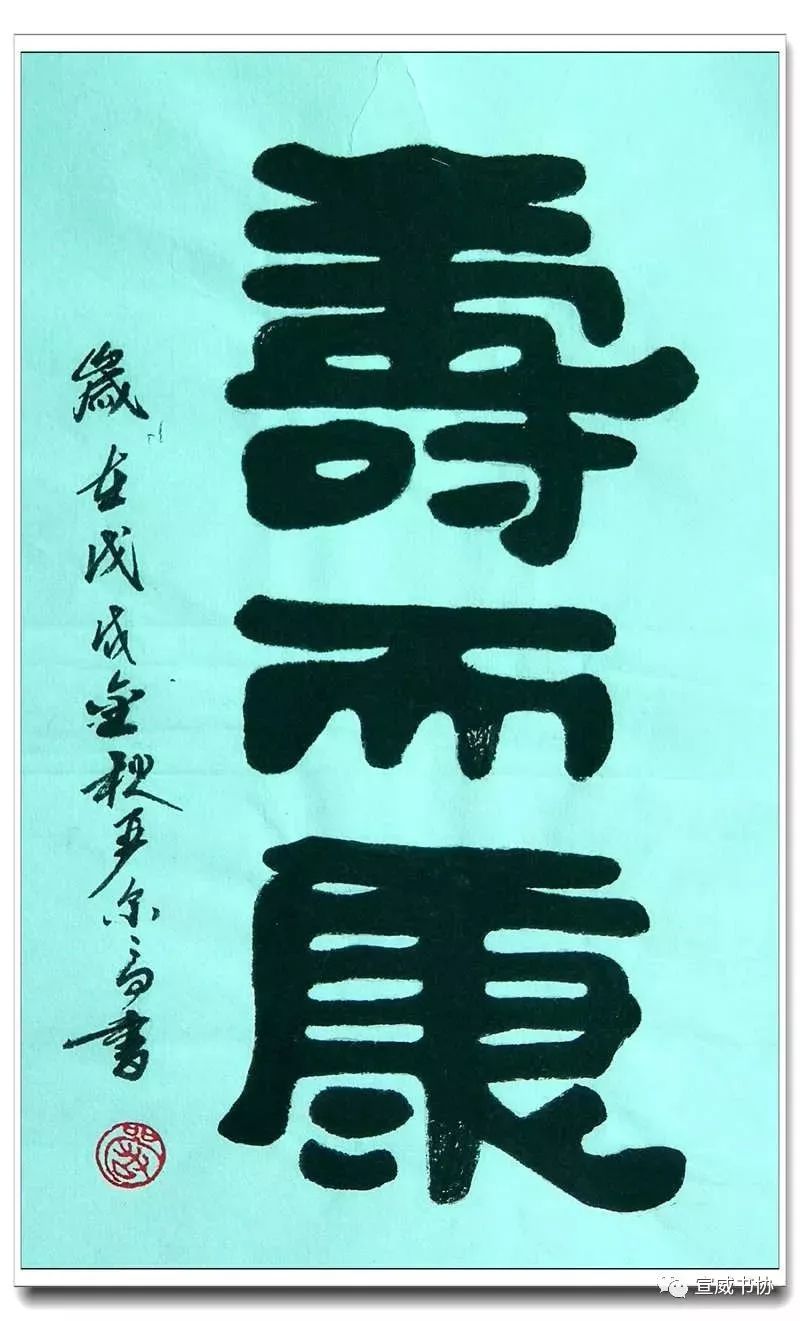 壽而康
歲在戊戌金秋尹尔富書
宣威书协